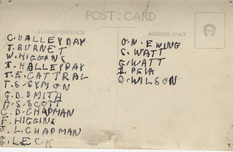 POST CARD
CORRESPONDENCE
ADDRESS ONLY
C. HALLEYDAY
T. BURNET
W. HIGGANS
I. HALLEYDAY
T. E. CATTRAL
T. S. SYMON
G. D. SMITH
A. S. SCOTT
C. D. CHAPMAN
F. HIGGINS
J. L. CHAPMAN
G. LECK
O. N. EWING
S. WATT
G. WATT
D. WILSON